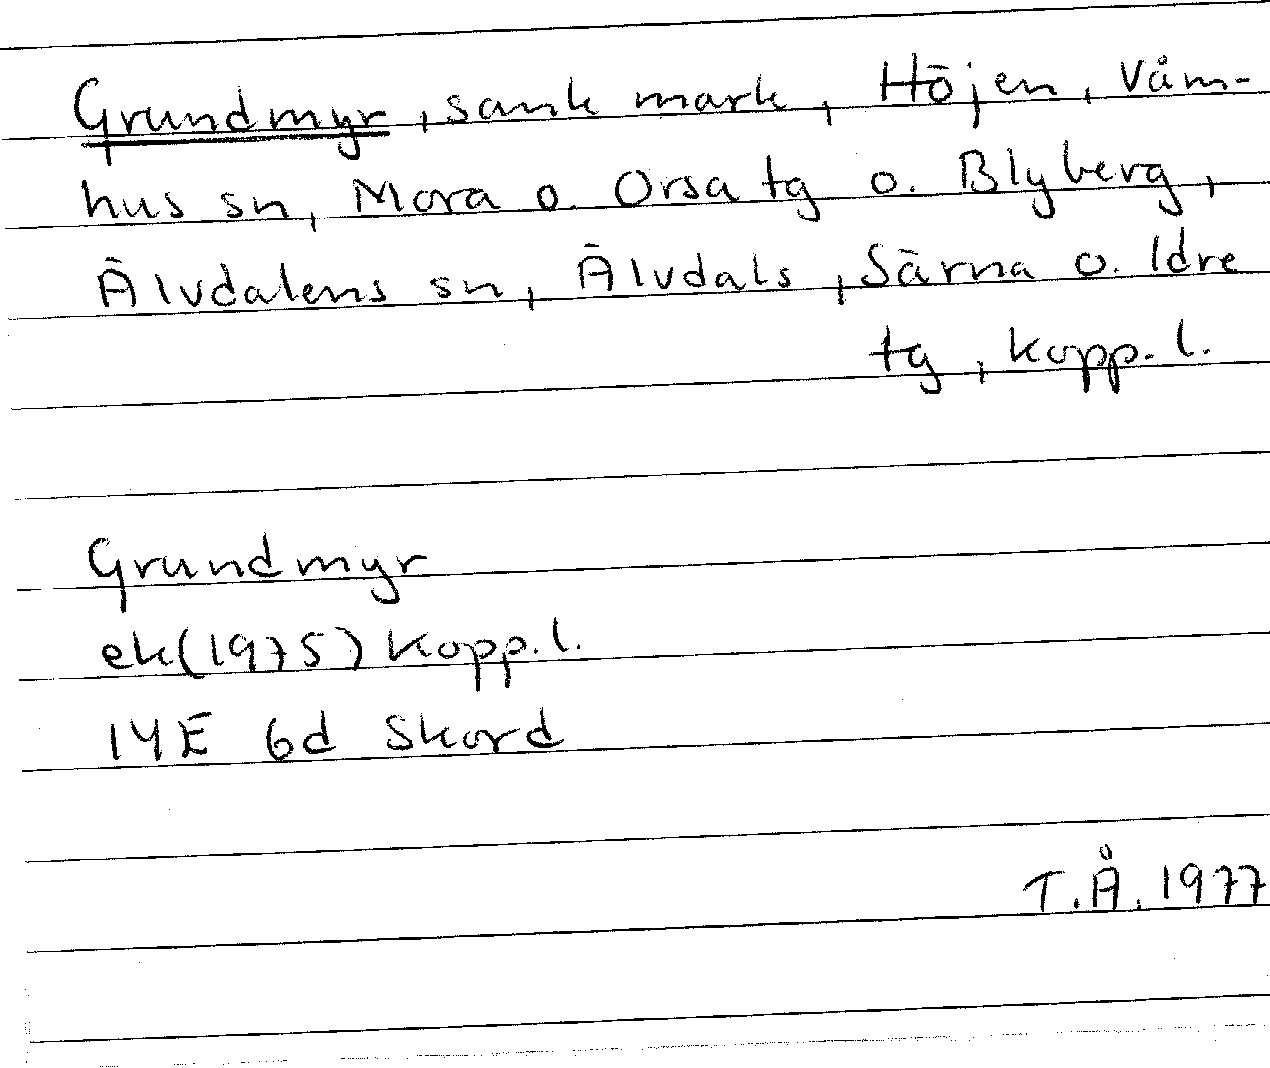 Grundmyr, sank mark, Höjen, Våm-
hus sn, Mora o. Orsa tg o. Blyberg,
Älvdalens sn, Älvdals, Särna o. Idre
tg, Kopp. l.
Grundmyr
ek(1975) Kopp. l.
14E 6d Skord
T.Å. 1977